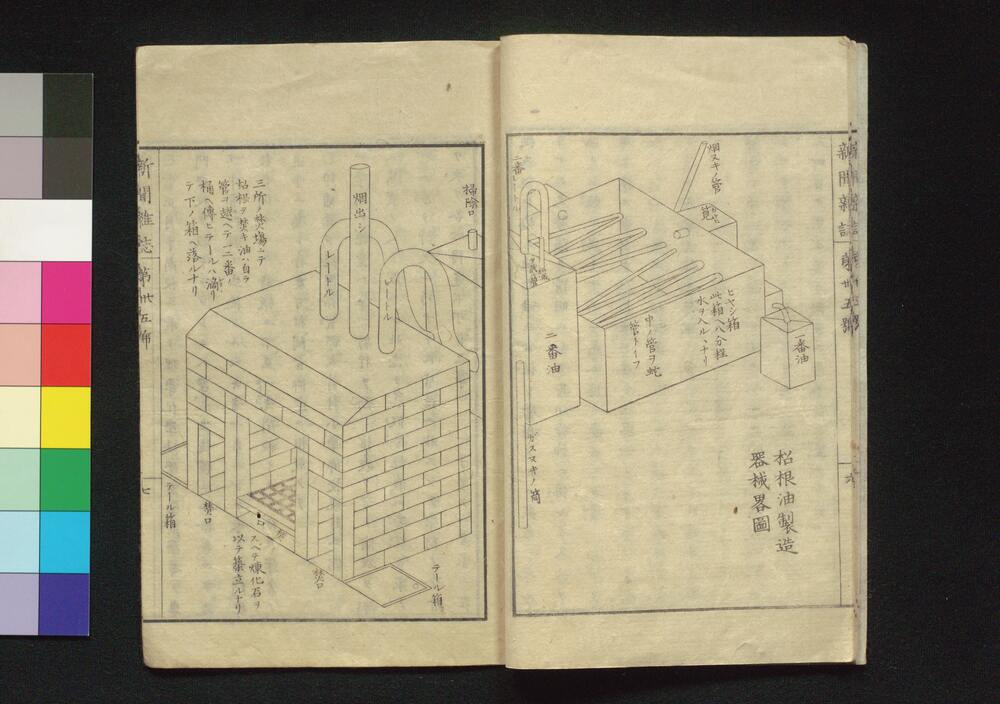 新聞雑誌
第卅五號
六
松根油製造
器械畧圖
一番油
烟ヌキノ管
筧
ヒヤシ箱
此箱ヘ八分程
水ヲヘルヽナリ
中ノ管ヲ蛇
管トイフ
二番油
ガスヌキノ筒
掃除口
烟出シ
レートル
レートル
三所ノ焚場ニテ
松根ヲ焚キ油ハ自ラ
管コ越ヘテ一二番ノ
桶ヘ傳ヒテールハ滴リ
テ下ノ箱ヘ落ルナリ
テール箱
焚口
焚口
スベテ煉化石ヲ
以テ築立ルナリ
焚口
テール箱
新聞雑誌
第卅五號
七